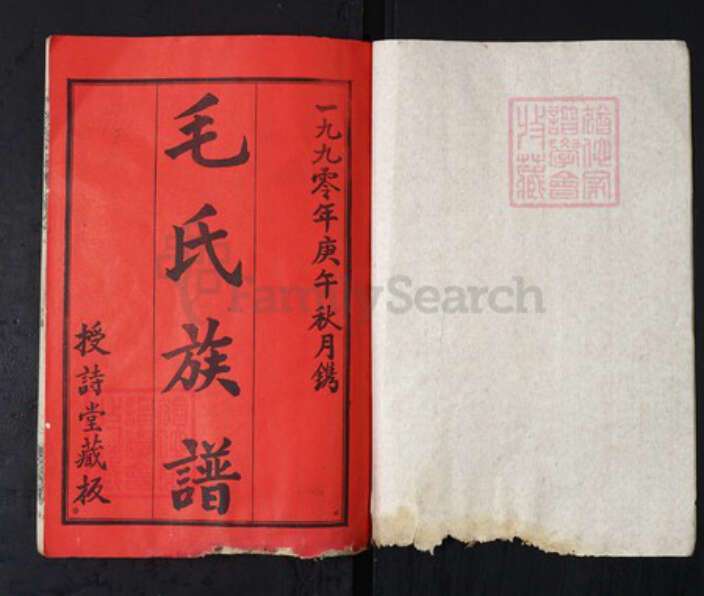 一九九零年庚午秋月鐫
毛氏族譜
授詩堂藏板
FamilySearch